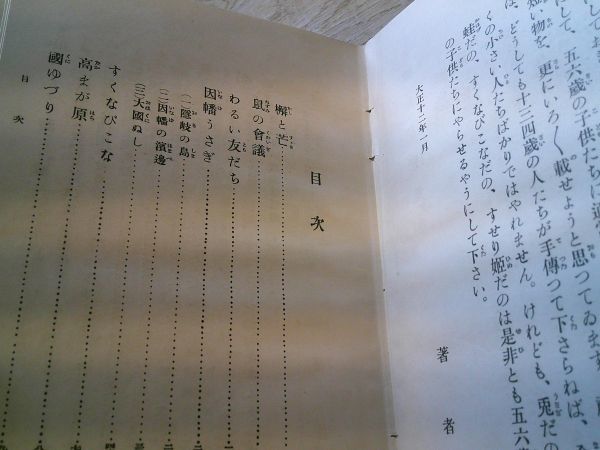 にして、五六歳の子供たちに適
短い物を、更にいろ〳〵載せようと思つてゐます
は、どうしても十三四歳の人たちが手傳つて下さらねば、
くの小さい人たちばかりではやれません。けれども、兎だの
蛙だの、すくなびこなだの、すせり姫だのは是非とも五六
の子供たちにやらせるやうにして下さい。
大正十二年 月
著者
目次
樫と芒
鼠の會議
わるい友だち
因幡うさぎ
(一)隠岐の島
(二)因幡の濱邊
(三)大國ぬし
すくなびこな
高まが原
國ゆづり
目次